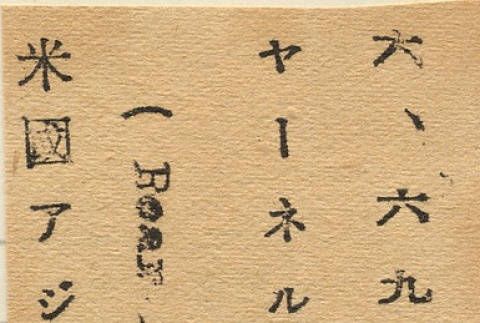 六、六九
ヤーネル
(Rear
米國アジ